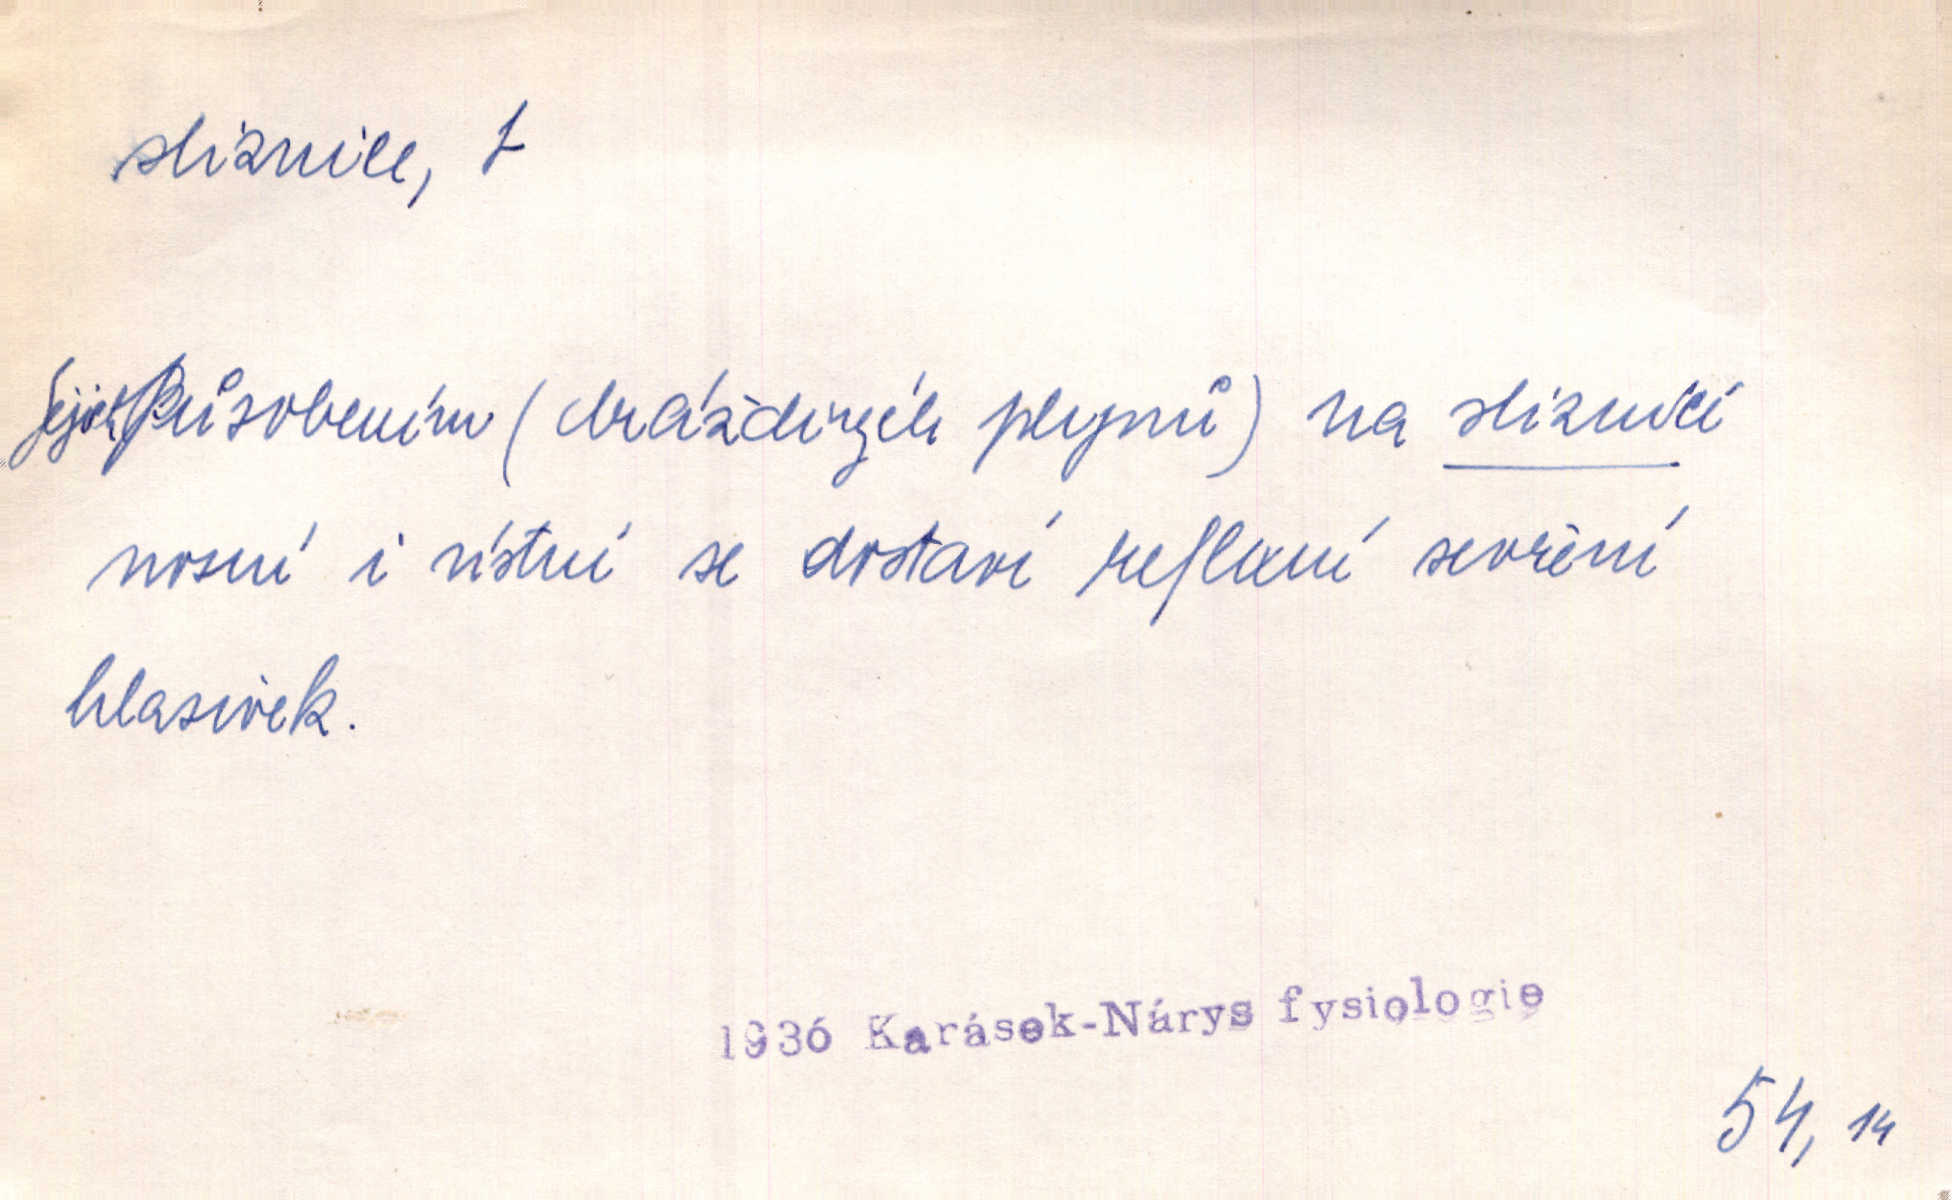 sliznice, ž
Jejich působením (dráždivých plynů) na sliznici
nosní i ústní se dostaví reflexní sevření
hlasivek.
1936 Karásek-Nárys fysiologie
54, 14